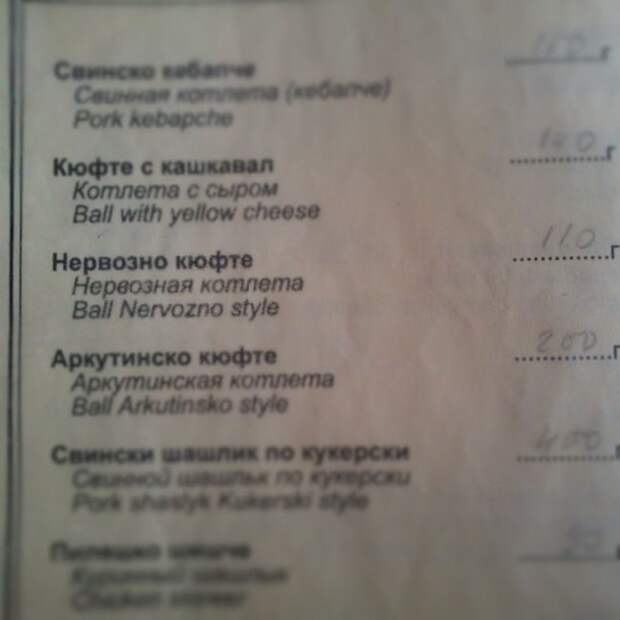 Свинско кебапче 110 г
Свинная котлета (кебапче)
Pork kebapche
Кюфте с кашкавал 140 г
Котлета с сыром
Ball with yellow cheese
Нервозно кюфте 110 г
Нервозная котлета
Ball Nervozno style
Аркутинско кюфте 200 г
Аркутинская котлета
Ball Arkutinsko style
Свински шашлик по кукерски 400 г
Свинной шашлык по кукерски
Pork shaslyk Kukerski style
Пилешко шишче 90
Куринный шашлык
Chicken